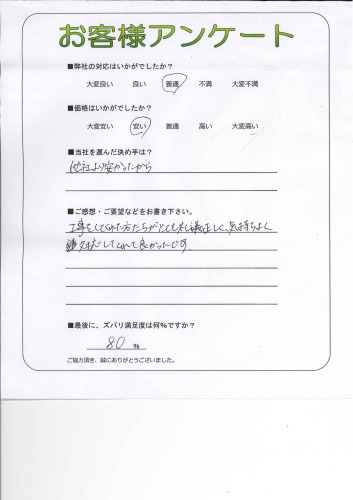 お客様アンケート
■弊社の対応はいかがでしたか？
大変良い 良い 普通 不満 大変不満
■価格はいかがでしたか？
大変安い 安い 普通 高い 大変高い
■当社を選んだ決め手は？
他社より安かったから
■ご感想・ご要望などをお書き下さい。
工事をしてくれた方たちがとても礼儀正しく、気持ちよく
対応してくれて良かったです。
■最後に、ズバリ満足度は何%ですか？
80 %
ご協力頂き、誠にありがとうございました。